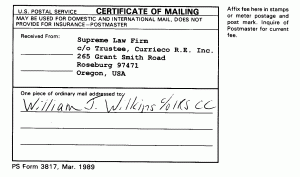 U.S. POSTAL SERVICE CERTIFICATE OF MAILING
MAY BE USED FOR DOMESTIC AND INTERNATIONAL MAIL, DOES NOT
PROVIDE FOR INSURANCE—POSTMASTER
Received From:
Supreme Law Firm
c/o Trustee, Currieco R.E. Inc.
265 Grant Smith Road
Roseburg 97471
Oregon, USA
One piece of ordinary mail addressed to:
William J. Wilkins c/o IRS CC
PS Form 3817, Mar. 1989
Affix fee here in stamps
or meter postage and
post mark. Inquire of
Postmaster for current
fee.